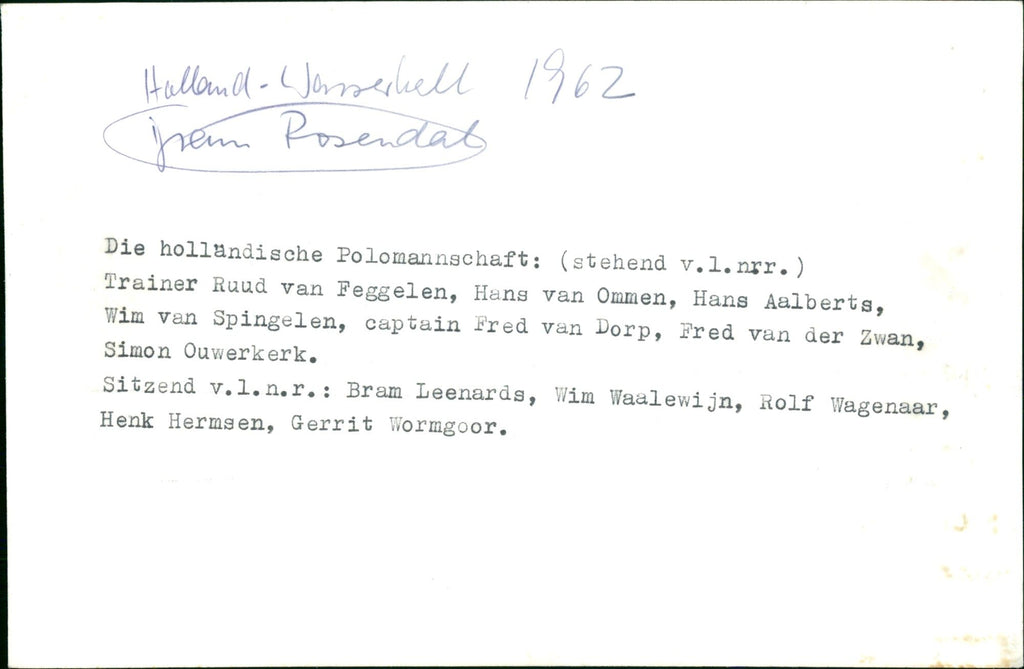 Holland - Wasserball 1962
Rosendal
Die holländische Polomannschaft: (stehend v.l.nrr.)
Trainer Ruud van Feggelen, Hans van Ommen, Hans Aalberts,
Wim van Spingelen, captain Fred van Dorp, Fred van der Zwan,
Simon Ouwerkerk.
Sitzend v.l.n.r.: Bram Leenards, Wim Waalewijn, Rolf Wagenaar,
Henk Hermsen, Gerrit Wormgoor.